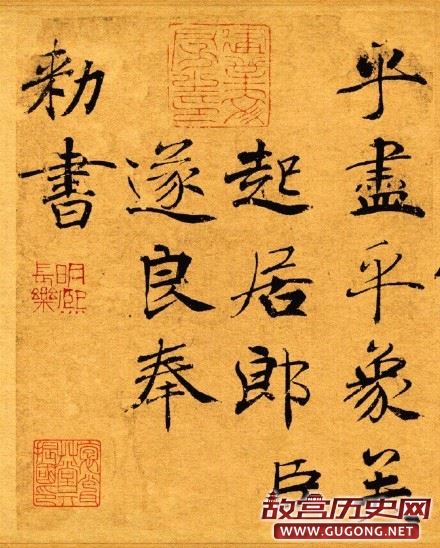 乎盡乎象矣
起居郎臣
遂良奉
勑書
故宫历史网
WWW.GUGONG.NET